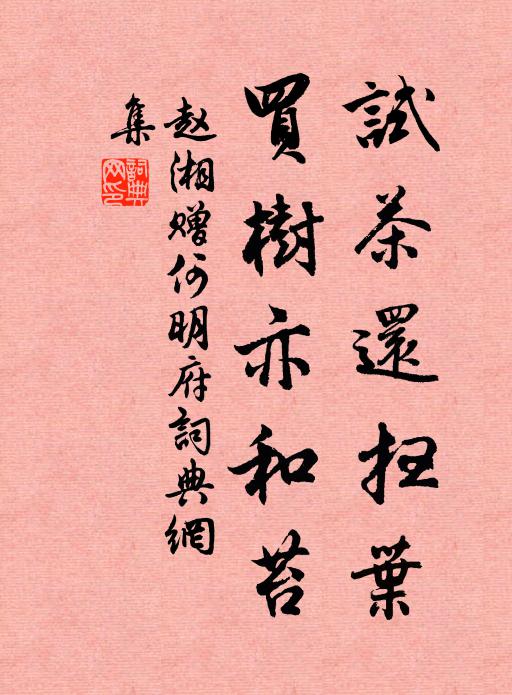 試茶還扫葉
買樹亦和苔
赵湘赠何明府詞典網
集
詞典网印